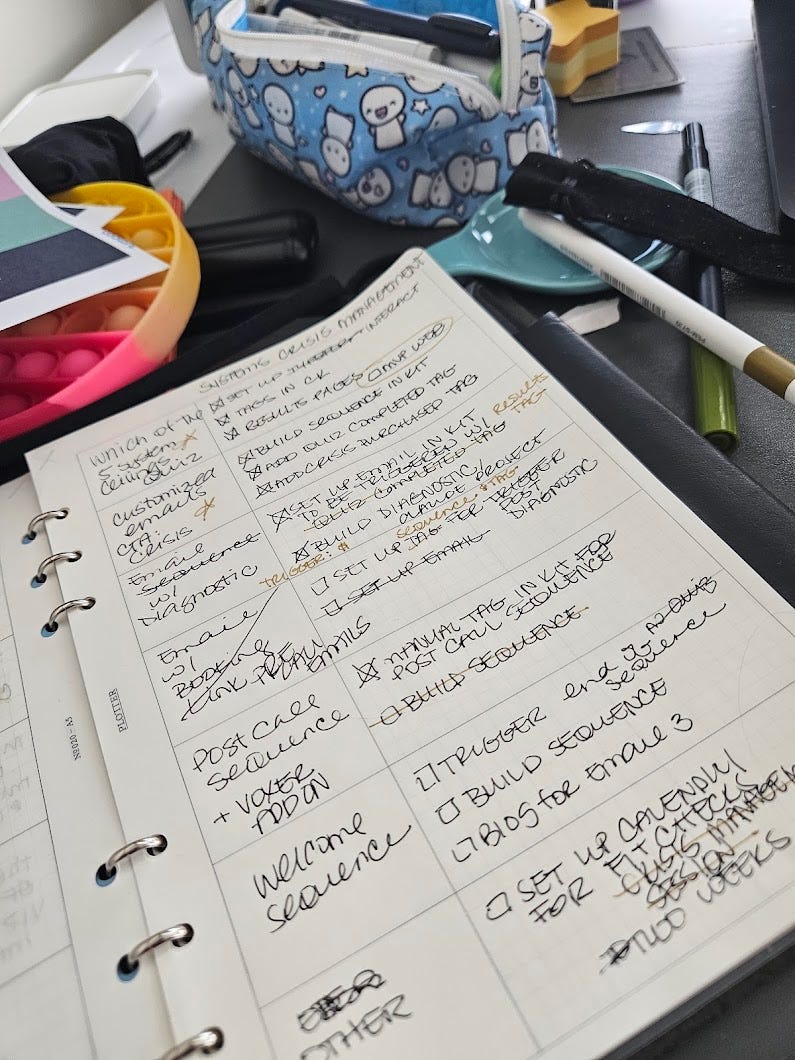 SYSTEMS CRISIS MANAGEMENT
Which of the
5 System
ceilings
QUIZ
SET UP INTERACT
TAGS IN CK
RESULTS PAGES MVP WEB
customized
emails
CTA:
CRISIS
BUILD SEQUENCE IN KIT
ADD QUIZ COMPLETED TAG
ADD CRISIS PURCHASED TAG
Email
Sequence
w/
Diagnostic
SET UP EMAIL IN KIT
TO BE TRIGGERED W/ RESULTS
QUIZ COMPLETED TAG TAG
BUILD DIAGNOSTIC/
CLAUDE PROJECT
TRIGGER: $ sequence + TAG
Email
w/
BOOKING
LINK PRECALL
EMAILS
SET UP TAG FOR TRIGGER
POST
DIAGNOSTIC
SET UP EMAIL
POST CALL
sequence
+ VOXER
ADD ON
MANUAL TAG IN KIT FOR
POST CALL SEQUENCE
BUILD SEQUENCE
welcome
sequence
TRIGGER end of
sequence
BUILD SEQUENCE
BIOS for Email 3
OTHER
SET UP CALENDLY
FOR FIT CHECKS
CRISIS MANAGEMEN
SESSION
TWO WEEKS
PLOTTER